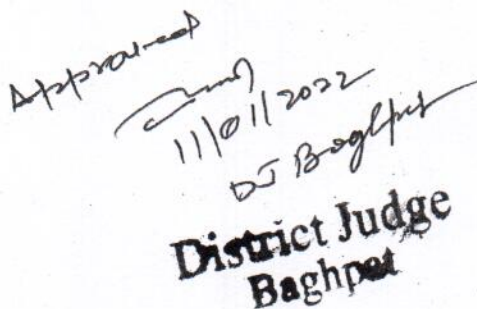 Approved
11/01/2022
DJ Baghpat
District Judge
Baghpat